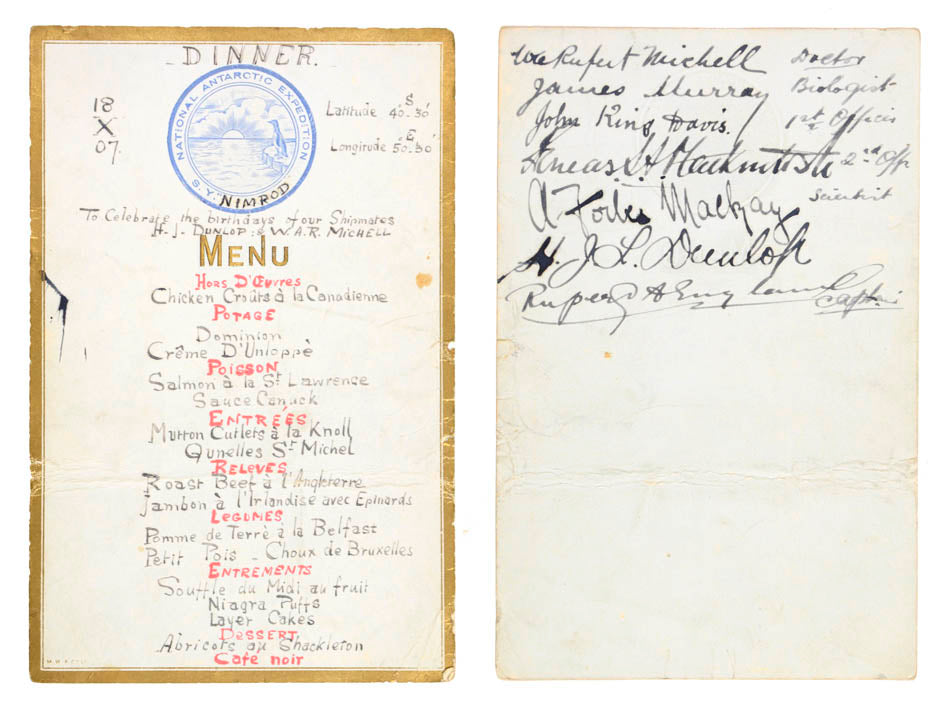 DINNER.
NATIONAL ANTARCTIC EXPEDITION.
S.Y. "NIMROD"
18
X
07.
Latitude 40°-30' S
Longitude 50°-30' E
To Celebrate the birthdays of our Shipmates
H.J. DUNLOP: & W.A.R. MICHELL
MENU
HORS D'ŒUVRES
Chicken Croûts à la Canadienne
POTAGE
Dominion
Crême D'Unloppè
POISSON
Salmon à la St. Lawrence
Sauce Canuck
ENTRÉES
Mutton Cutlets à la Knoll
Qunelles St. Michel
RELEVES
Roast Beef à l'Angleterre
Jambon à l'Irlandise avec Epinards
LEGUMES
Pomme de Terrè à la Belfast
Petit Pois - Choux de Bruxelles
ENTREMENTS
Souffle du Midi au fruit
Niagra Puffs
Layer Cakes
DESSERT
Abricots au Shackleton
Cafe noir
Rupert Michell Doctor
James Murray Biologist
John King Davis. 1st Officer
Aeneas. A. Mackintosh 2nd Offr
A Forbes Mackay Scientist
H. J. L. Dunlop
Rupert G England Captain